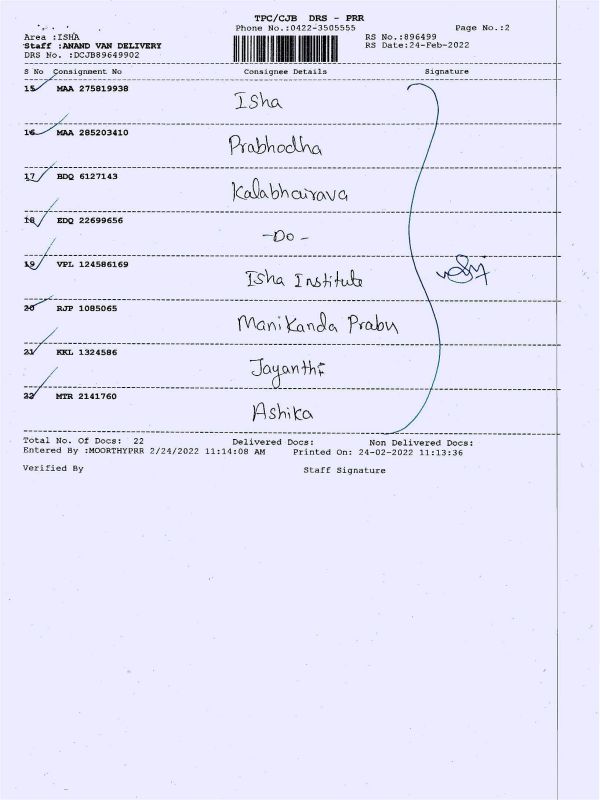 TPC/CJB DRS - PRR
Phone No.:0422-3505555 Page No.:2
Area :ISHA RS No.:896499
Staff :ANAND VAN DELIVERY RS Date:24-Feb-2022
DRS No. :DCJB89649902
S No Consignment No Consignee Details Signature
15 MAA 275819938 Isha
16 MAA 285203410 Prabhodha
17 BDQ 6127143 Kalabhairava
18 EDQ 22699656 -Do-
19 VPL 124586169 Isha Institute
20 RJP 1085065 Manikanda Prabu
21 KKL 1324586 Jayanthi
22 MTR 2141760 Ashika
Total No. Of Docs: 22 Delivered Docs: Non Delivered Docs:
Entered By :MOORTHYPRR 2/24/2022 11:14:08 AM Printed On: 24-02-2022 11:13:36
Verified By Staff Signature